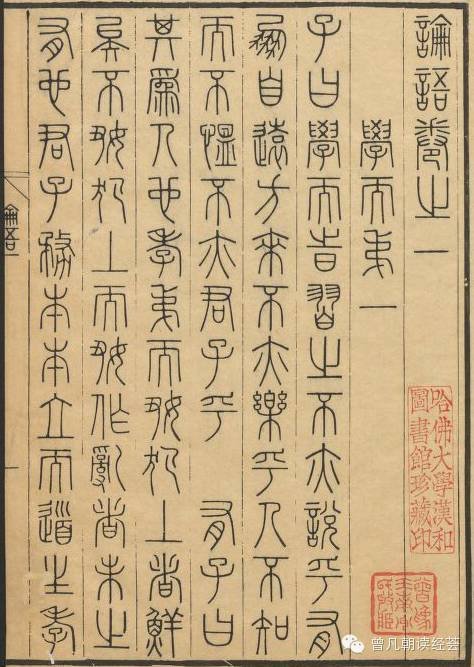 論語卷之一
學而弟一
子曰學而旹習之不亦說乎有
朋自遠方來不亦樂乎人不知
而不慍不亦君子乎 有子曰
其爲人也孝弟而好犯上者鮮
矣不好犯上而好作亂者未之
有也君子務本本立而道生孝
論語一
一
哈佛大學漢和
圖書館珍藏印
曾凡朝读经荟